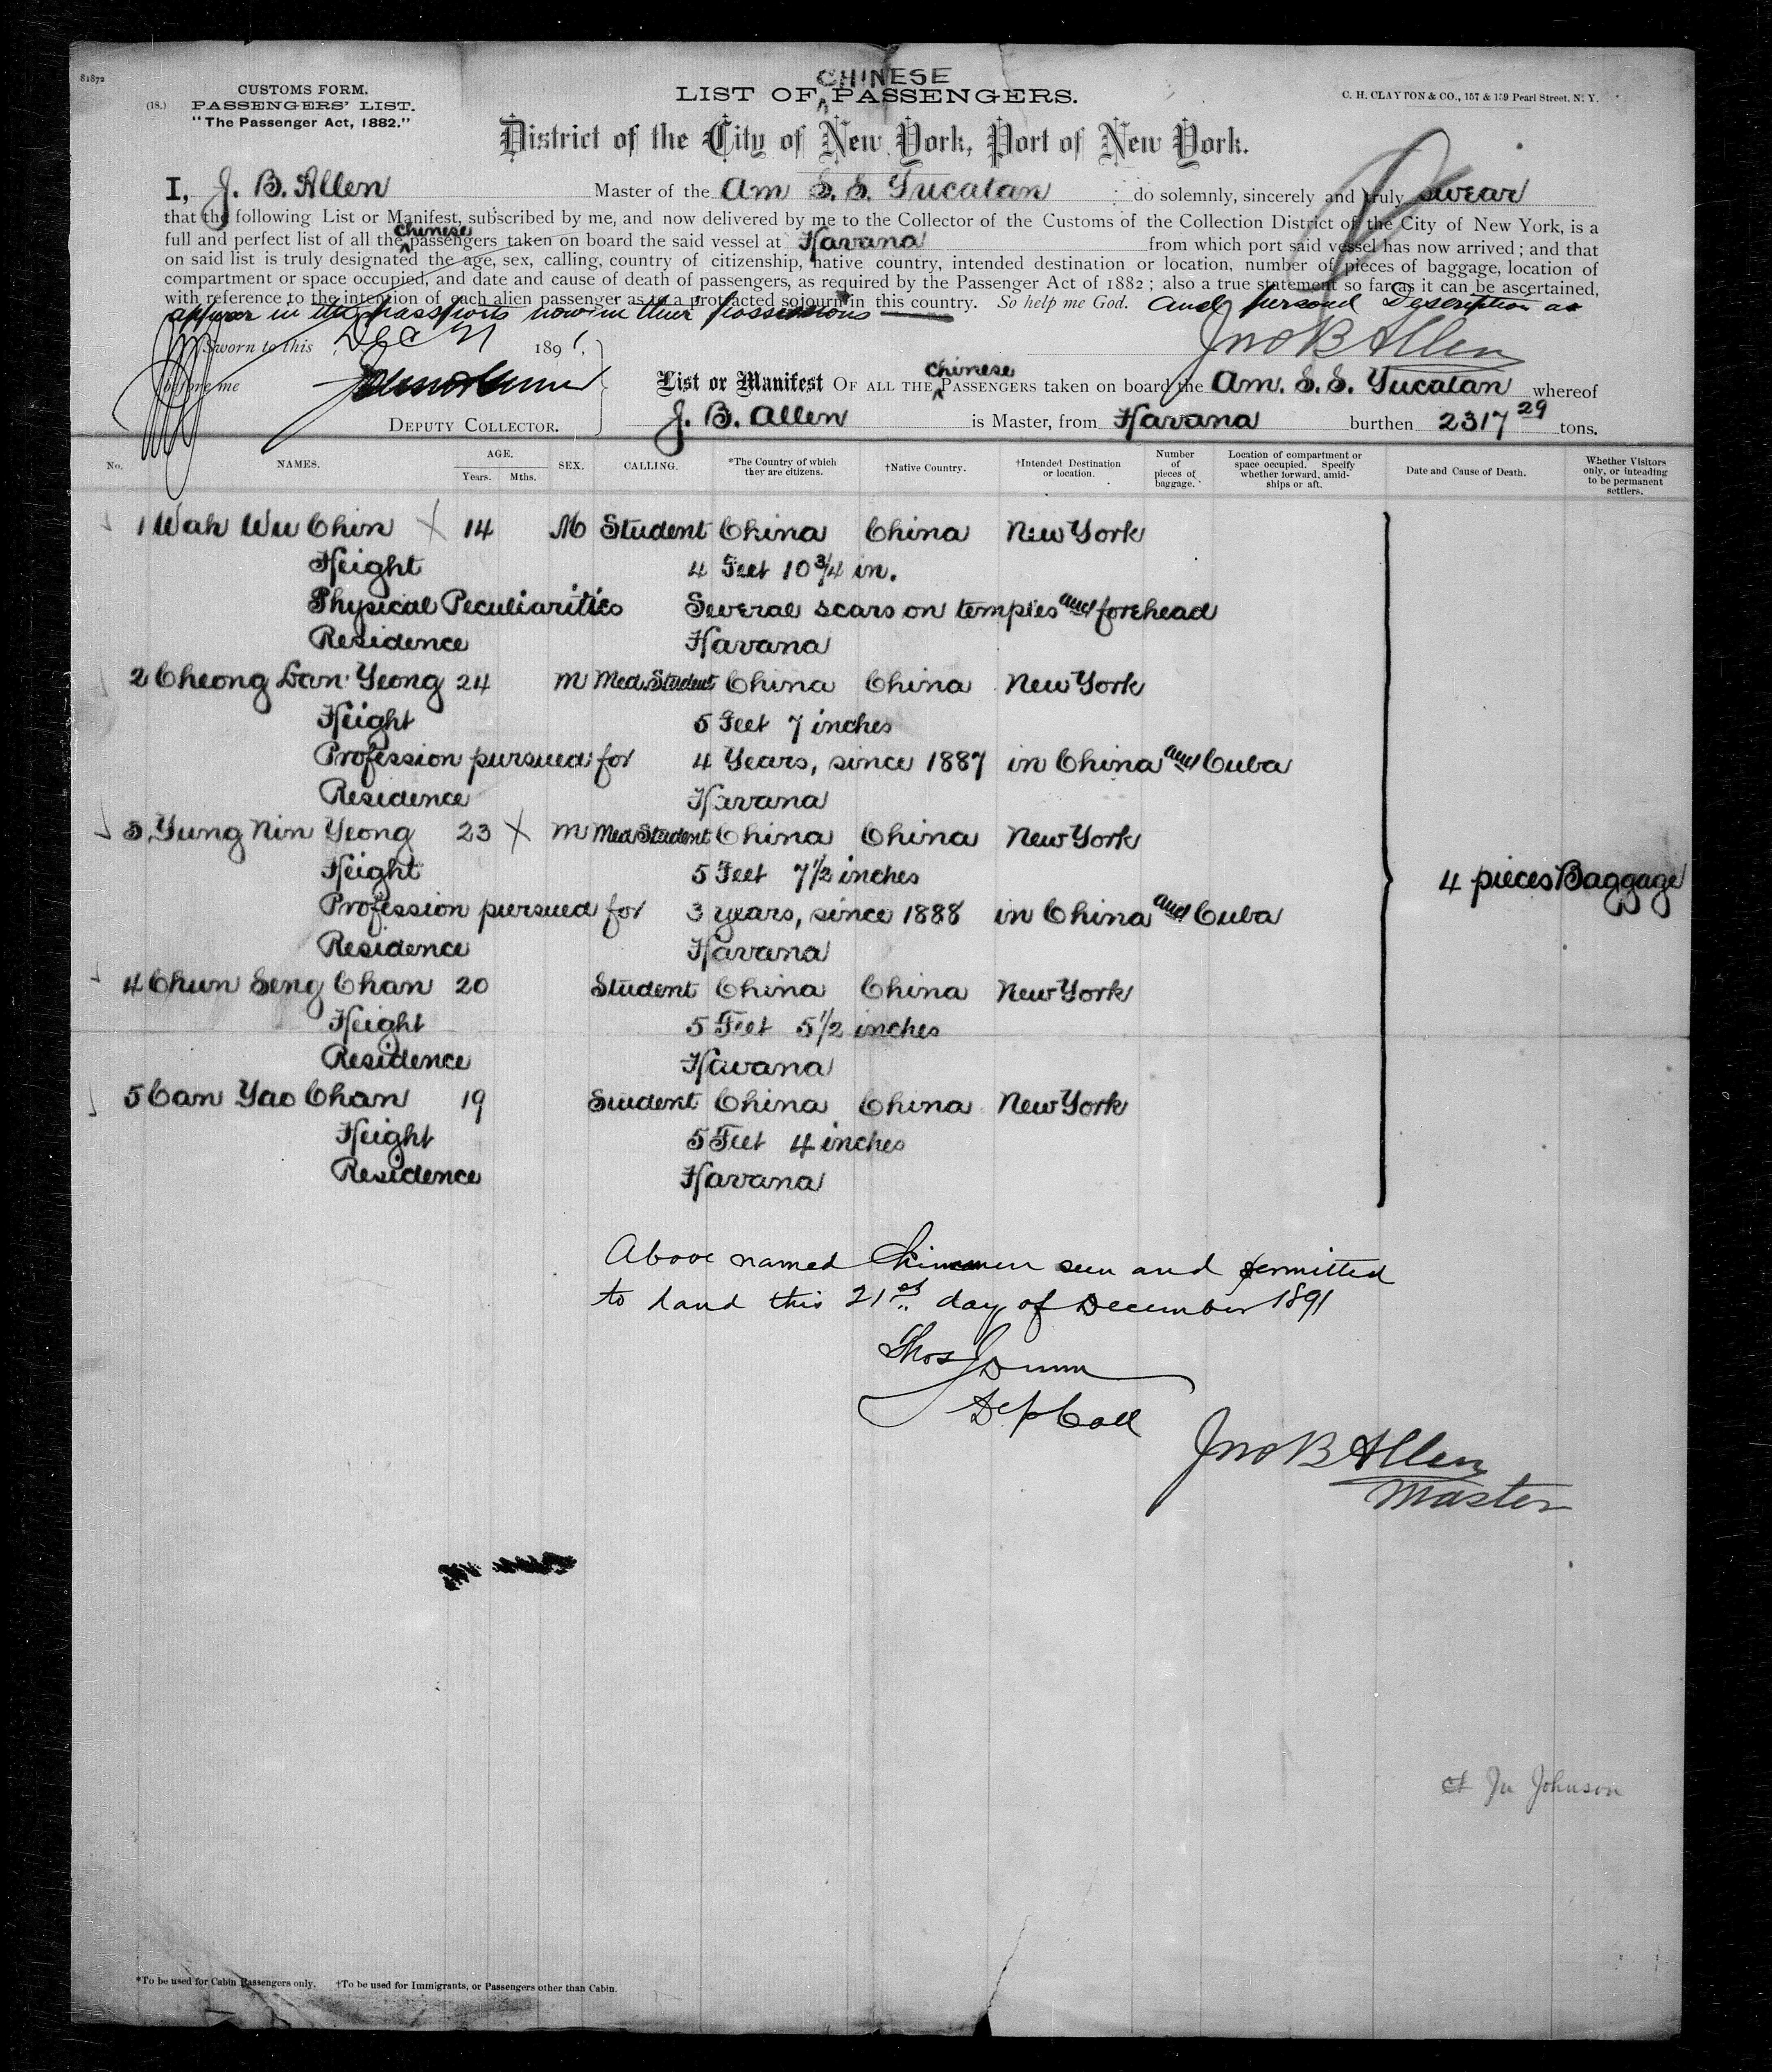 81872
CUSTOMS FORM.
(18.) PASSENGERS' LIST.
"The Passenger Act, 1882."
CHINESE
LIST OF PASSENGERS.
C. H. CLAYTON & CO., 157 & 159 Pearl Street, N. Y.
District of the City of New York, Port of New York.
I, J. B. Allen Master of the Am S. S. Yucatan do solemnly, sincerely and truly swear
that the following List or Manifest, subscribed by me, and now delivered by me to the Collector of the Customs of the Collection District of the City of New York, is a
full and perfect list of all the Chinese passengers taken on board the said vessel at Havana from which port said vessel has now arrived; and that
on said list is truly designated the age, sex, calling, country of citizenship, native country, intended destination or location, number of pieces of baggage, location of
compartment or space occupied, and date and cause of death of passengers, as required by the Passenger Act of 1882; also a true statement so far as it can be ascertained,
with reference to the intention of each alien passenger as to a protracted sojourn in this country. So help me God. and personal Description as
appear in the passports now in their possessions
Sworn to this Dec 21 1891,
Jno B Allen
before me
DEPUTY COLLECTOR.
List or Manifest OF ALL THE Chinese PASSENGERS taken on board the Am. S. S. Yucatan whereof
J. B. Allen is Master, from Havana burthen 2317 29 tons.
No. NAMES. AGE. Years. Mths. SEX. CALLING. *The Country of which they are citizens. †Native Country. †Intended Destination or location. Number of pieces of baggage. Location of compartment or space occupied. Specify whether forward, amidships or aft. Date and Cause of Death. Whether Visitors only, or intending to be permanent settlers.
1 Wah Wu Chin X 14 M Student China China New York
Height 4 Feet 10 3/4 in.
Physical Peculiarities Several scars on temples and forehead
Residence Havana
2 Cheong Lan Yeong 24 M Med. Student China China New York
Height 5 Feet 7 inches
Profession pursued for 4 Years, since 1887 in China and Cuba
Residence Havana
3 Yung Nin Yeong 23 X M Med Student China China New York
Height 5 Feet 7 1/2 inches
4 pieces Baggage
Profession pursued for 3 years, since 1888 in China and Cuba
Residence Havana
4 Chun Seng Chan 20 Student China China New York
Height 5 Feet 5 1/2 inches
Residence Havana
5 Can Yao Chan 19 Student China China New York
Height 5 Feet 4 inches
Residence Havana
Above named Chinamen seen and permitted
to land this 21st day of December 1891
Thos J Dunn
Dep Coll
Jno B Allen
Master
Johnson
*To be used for Cabin Passengers only. †To be used for Immigrants, or Passengers other than Cabin.